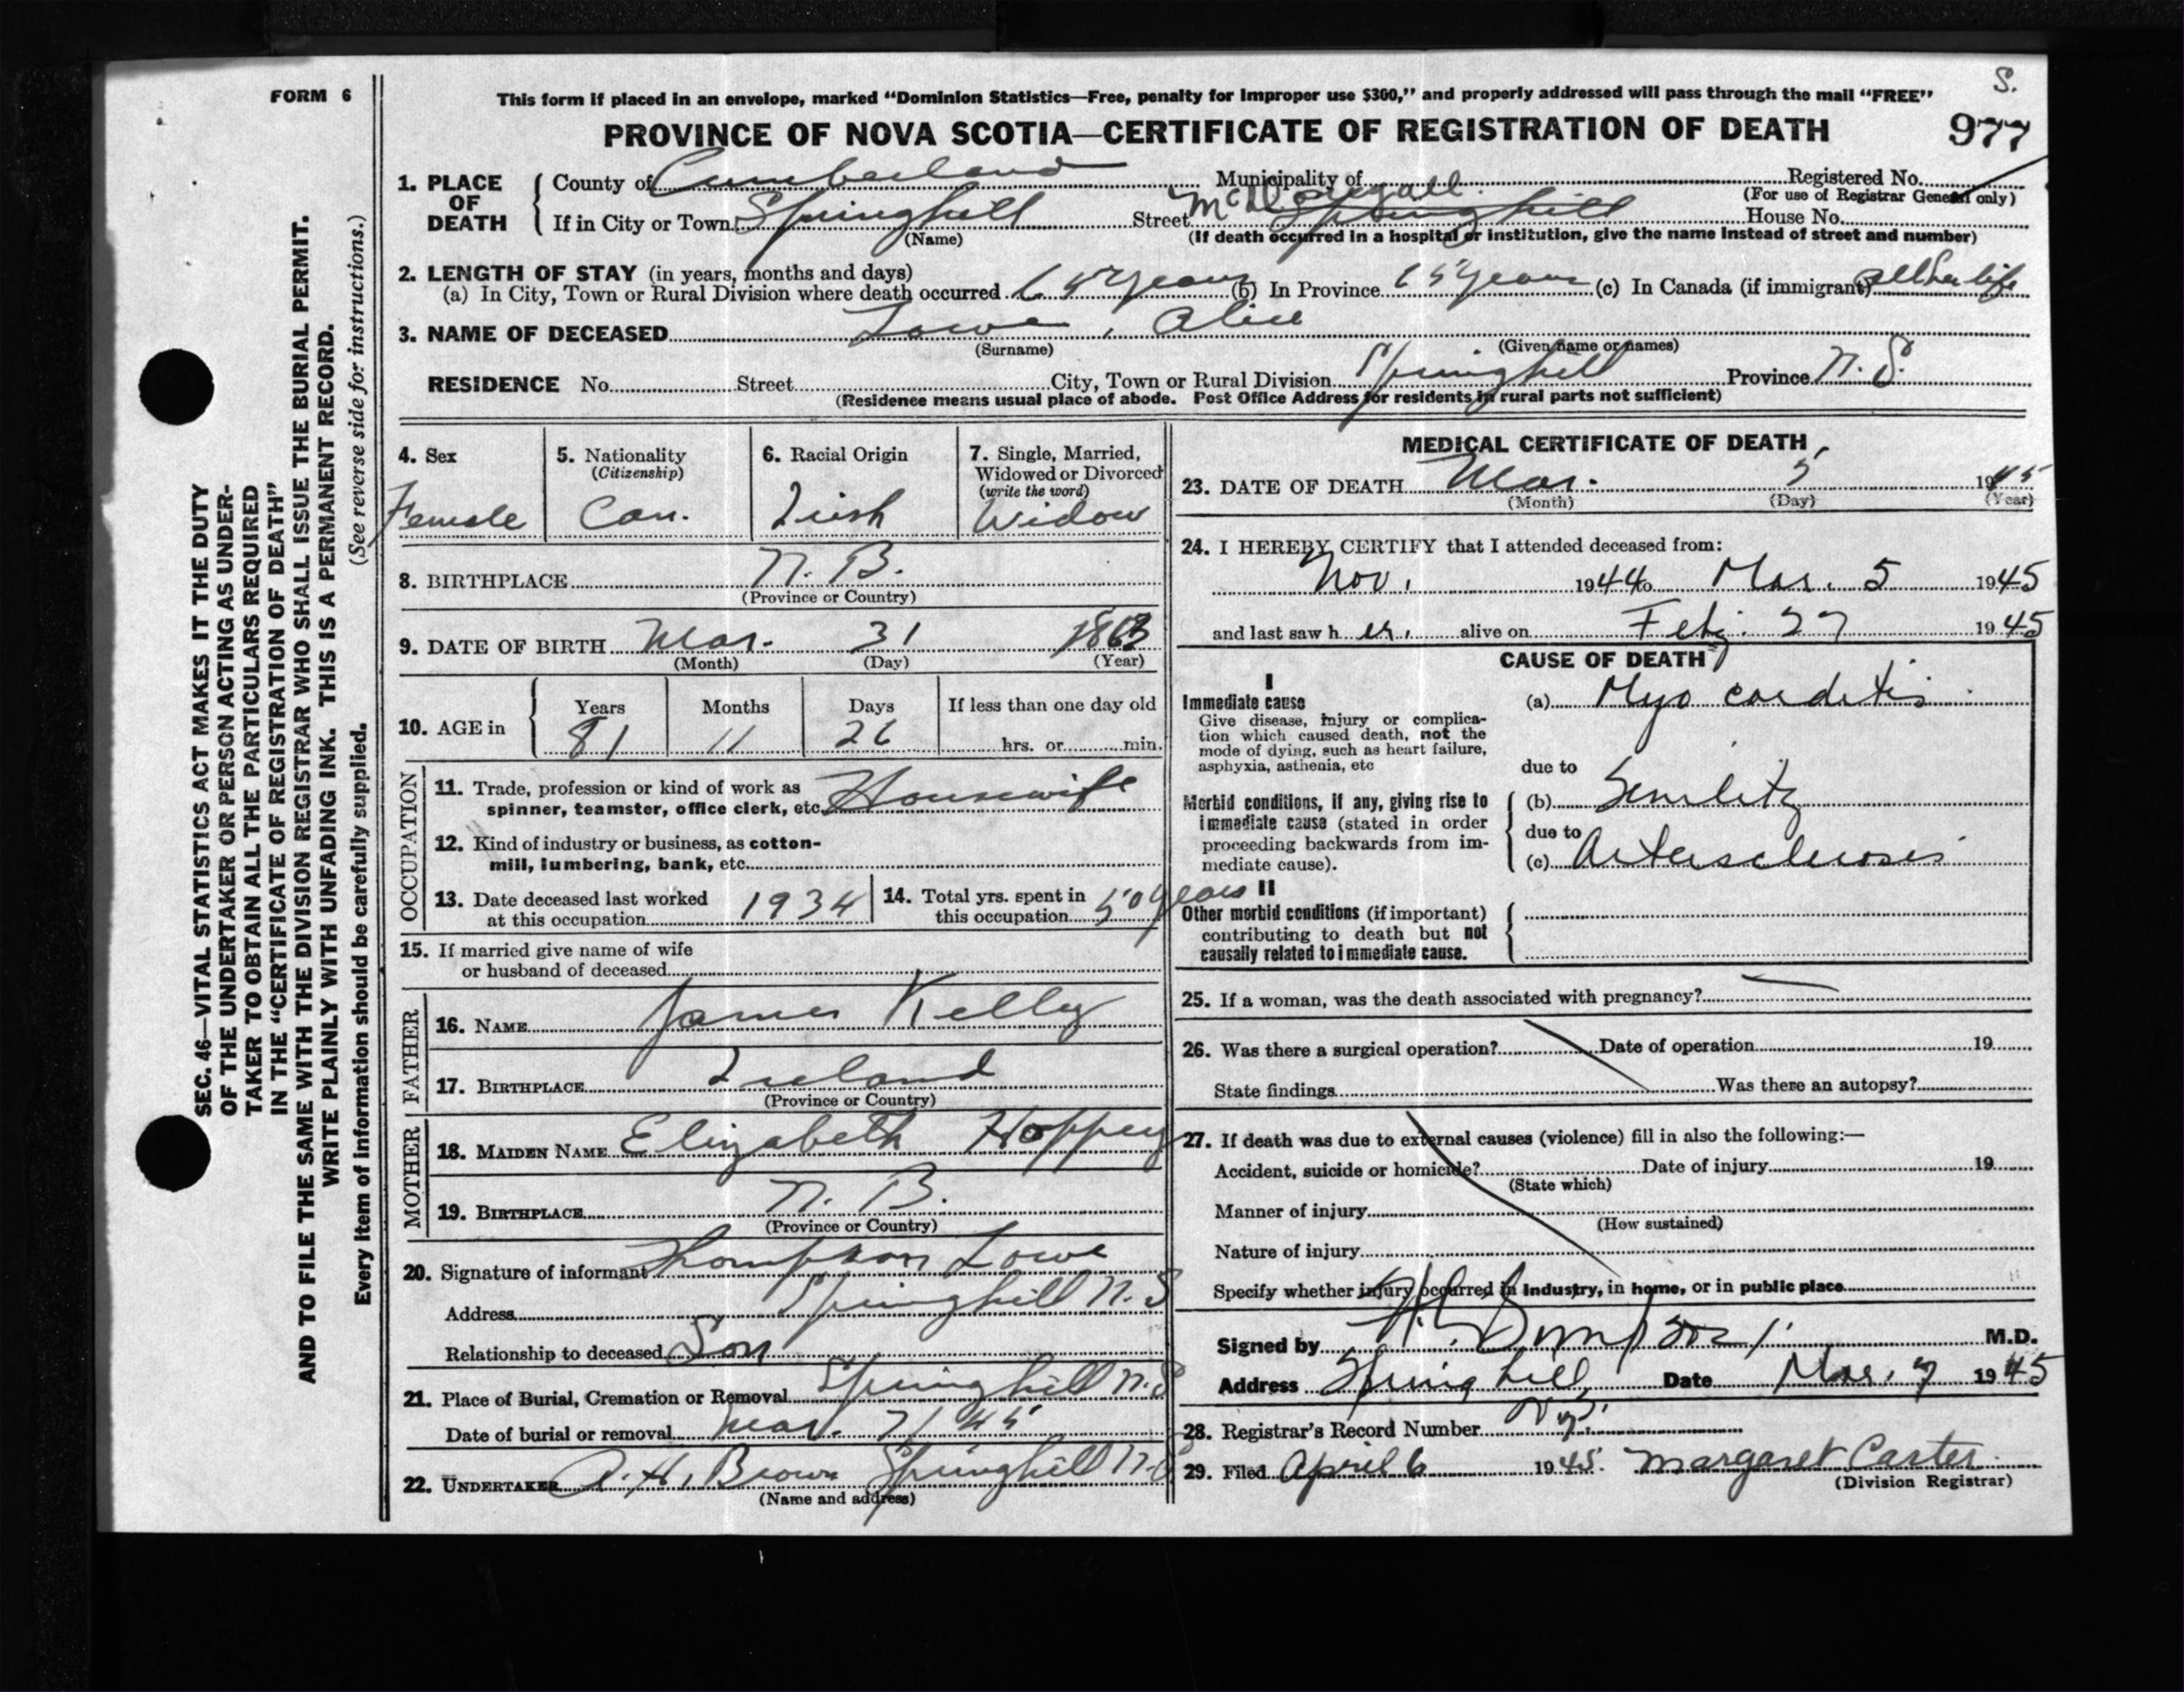 S.
FORM 6
This form if placed in an envelope, marked “Dominion Statistics—Free, penalty for improper use $300,” and properly addressed will pass through the mail “FREE”
PROVINCE OF NOVA SCOTIA—CERTIFICATE OF REGISTRATION OF DEATH 977
1. PLACE OF DEATH
County of Cumberland Municipality of Registered No.
(For use of Registrar General only)
If in City or Town Springhill Street McDougall Springhill House No.
(Name) (If death occurred in a hospital or institution, give the name instead of street and number)
2. LENGTH OF STAY (in years, months and days)
(a) In City, Town or Rural Division where death occurred 65 years (b) In Province 65 years (c) In Canada (if immigrant) all her life
3. NAME OF DECEASED Lowe, Alice
(Surname) (Given name or names)
RESIDENCE No. Street City, Town or Rural Division Springhill Province N.S.
(Residence means usual place of abode. Post Office Address for residents in rural parts not sufficient)
4. Sex
Female
5. Nationality
(Citizenship)
Can.
6. Racial Origin
Irish
7. Single, Married,
Widowed or Divorced
(write the word)
Widow
8. BIRTHPLACE N. B.
(Province or Country)
9. DATE OF BIRTH Mar. 31 1863
(Month) (Day) (Year)
10. AGE in
Years Months Days If less than one day old
81 11 26 hrs. or min.
OCCUPATION
11. Trade, profession or kind of work as
spinner, teamster, office clerk, etc. Housewife
12. Kind of industry or business, as cotton-
mill, lumbering, bank, etc.
13. Date deceased last worked
at this occupation 1934
14. Total yrs. spent in
this occupation 50 years
15. If married give name of wife
or husband of deceased
FATHER
16. NAME James Kelley
17. BIRTHPLACE Ireland
(Province or Country)
MOTHER
18. MAIDEN NAME Elizabeth Hoppey
19. BIRTHPLACE N. B.
(Province or Country)
20. Signature of informant Thompson Lowe
Address Springhill N.S
Relationship to deceased Son
21. Place of Burial, Cremation or Removal Springhill N.S
Date of burial or removal Mar. 7/45
22. UNDERTAKER A. H. Brown Springhill N.S
(Name and address)
MEDICAL CERTIFICATE OF DEATH
23. DATE OF DEATH Mar. 5 1945
(Month) (Day) (Year)
24. I HEREBY CERTIFY that I attended deceased from:
Nov. 1944 to Mar. 5 1945
and last saw h er. alive on Feb. 27 1945
CAUSE OF DEATH
I
Immediate cause
Give disease, injury or complica-
tion which caused death, not the
mode of dying, such as heart failure,
asphyxia, asthenia, etc
(a) Myo carditis
due to
Morbid conditions, if any, giving rise to
immediate cause (stated in order
proceeding backwards from im-
mediate cause).
(b) Senility
due to
(c) Arterscleroses
II
Other morbid conditions (if important)
contributing to death but not
causally related to immediate cause.
25. If a woman, was the death associated with pregnancy?
26. Was there a surgical operation? Date of operation 19
State findings Was there an autopsy?
27. If death was due to external causes (violence) fill in also the following:—
Accident, suicide or homicide? Date of injury 19
(State which)
Manner of injury
(How sustained)
Nature of injury
Specify whether injury occurred in industry, in home, or in public place
Signed by M.D.
Address Springhill, Date Mar. 7 1945
28. Registrar's Record Number
29. Filed April 6 1945. Margaret Carter
(Division Registrar)
SEC. 46—VITAL STATISTICS ACT MAKES IT THE DUTY
OF THE UNDERTAKER OR PERSON ACTING AS UNDER-
TAKER TO OBTAIN ALL THE PARTICULARS REQUIRED
IN THE “CERTIFICATE OF REGISTRATION OF DEATH”
AND TO FILE THE SAME WITH THE DIVISION REGISTRAR WHO SHALL ISSUE THE BURIAL PERMIT.
WRITE PLAINLY WITH UNFADING INK. THIS IS A PERMANENT RECORD.
Every item of information should be carefully supplied. (See reverse side for instructions.)